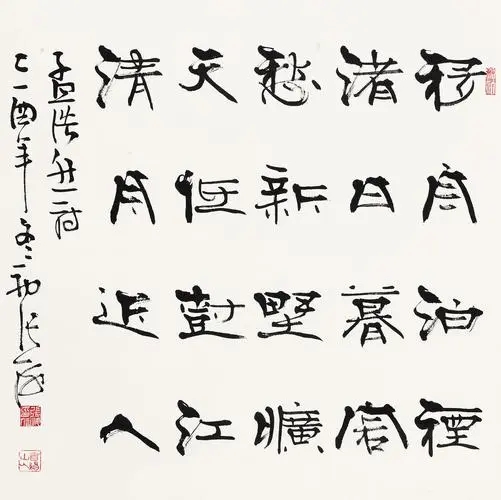 移舟泊煙
渚日暮客
愁新野曠
天低樹江
清月近人
孟浩然詩
乙酉年冬初張海